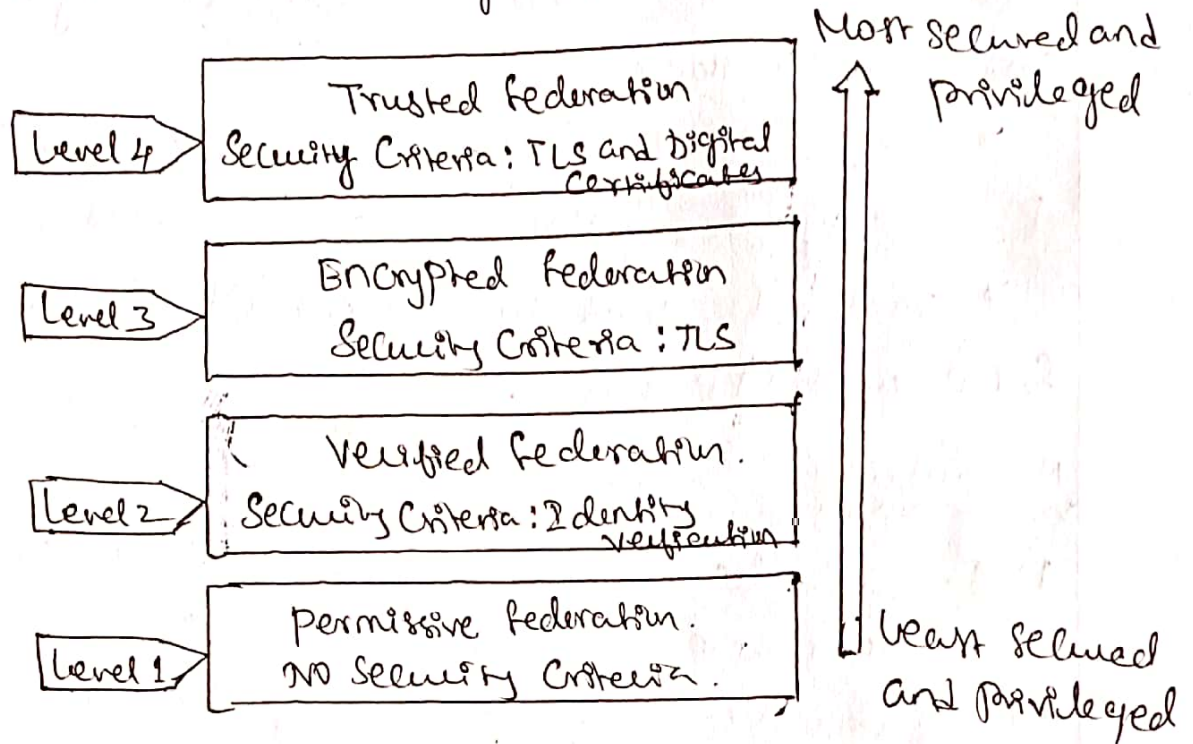 Most secured and
privileged
Level 4
Trusted federation
Security Criteria: TLS and Digital
Certificates
Level 3
Encrypted federation
Security Criteria: TLS
Level 2
Verified federation.
Security Criteria: Identity
verification
Level 1
permissive federation.
NO Security Criteria.
Least secured
and privileged